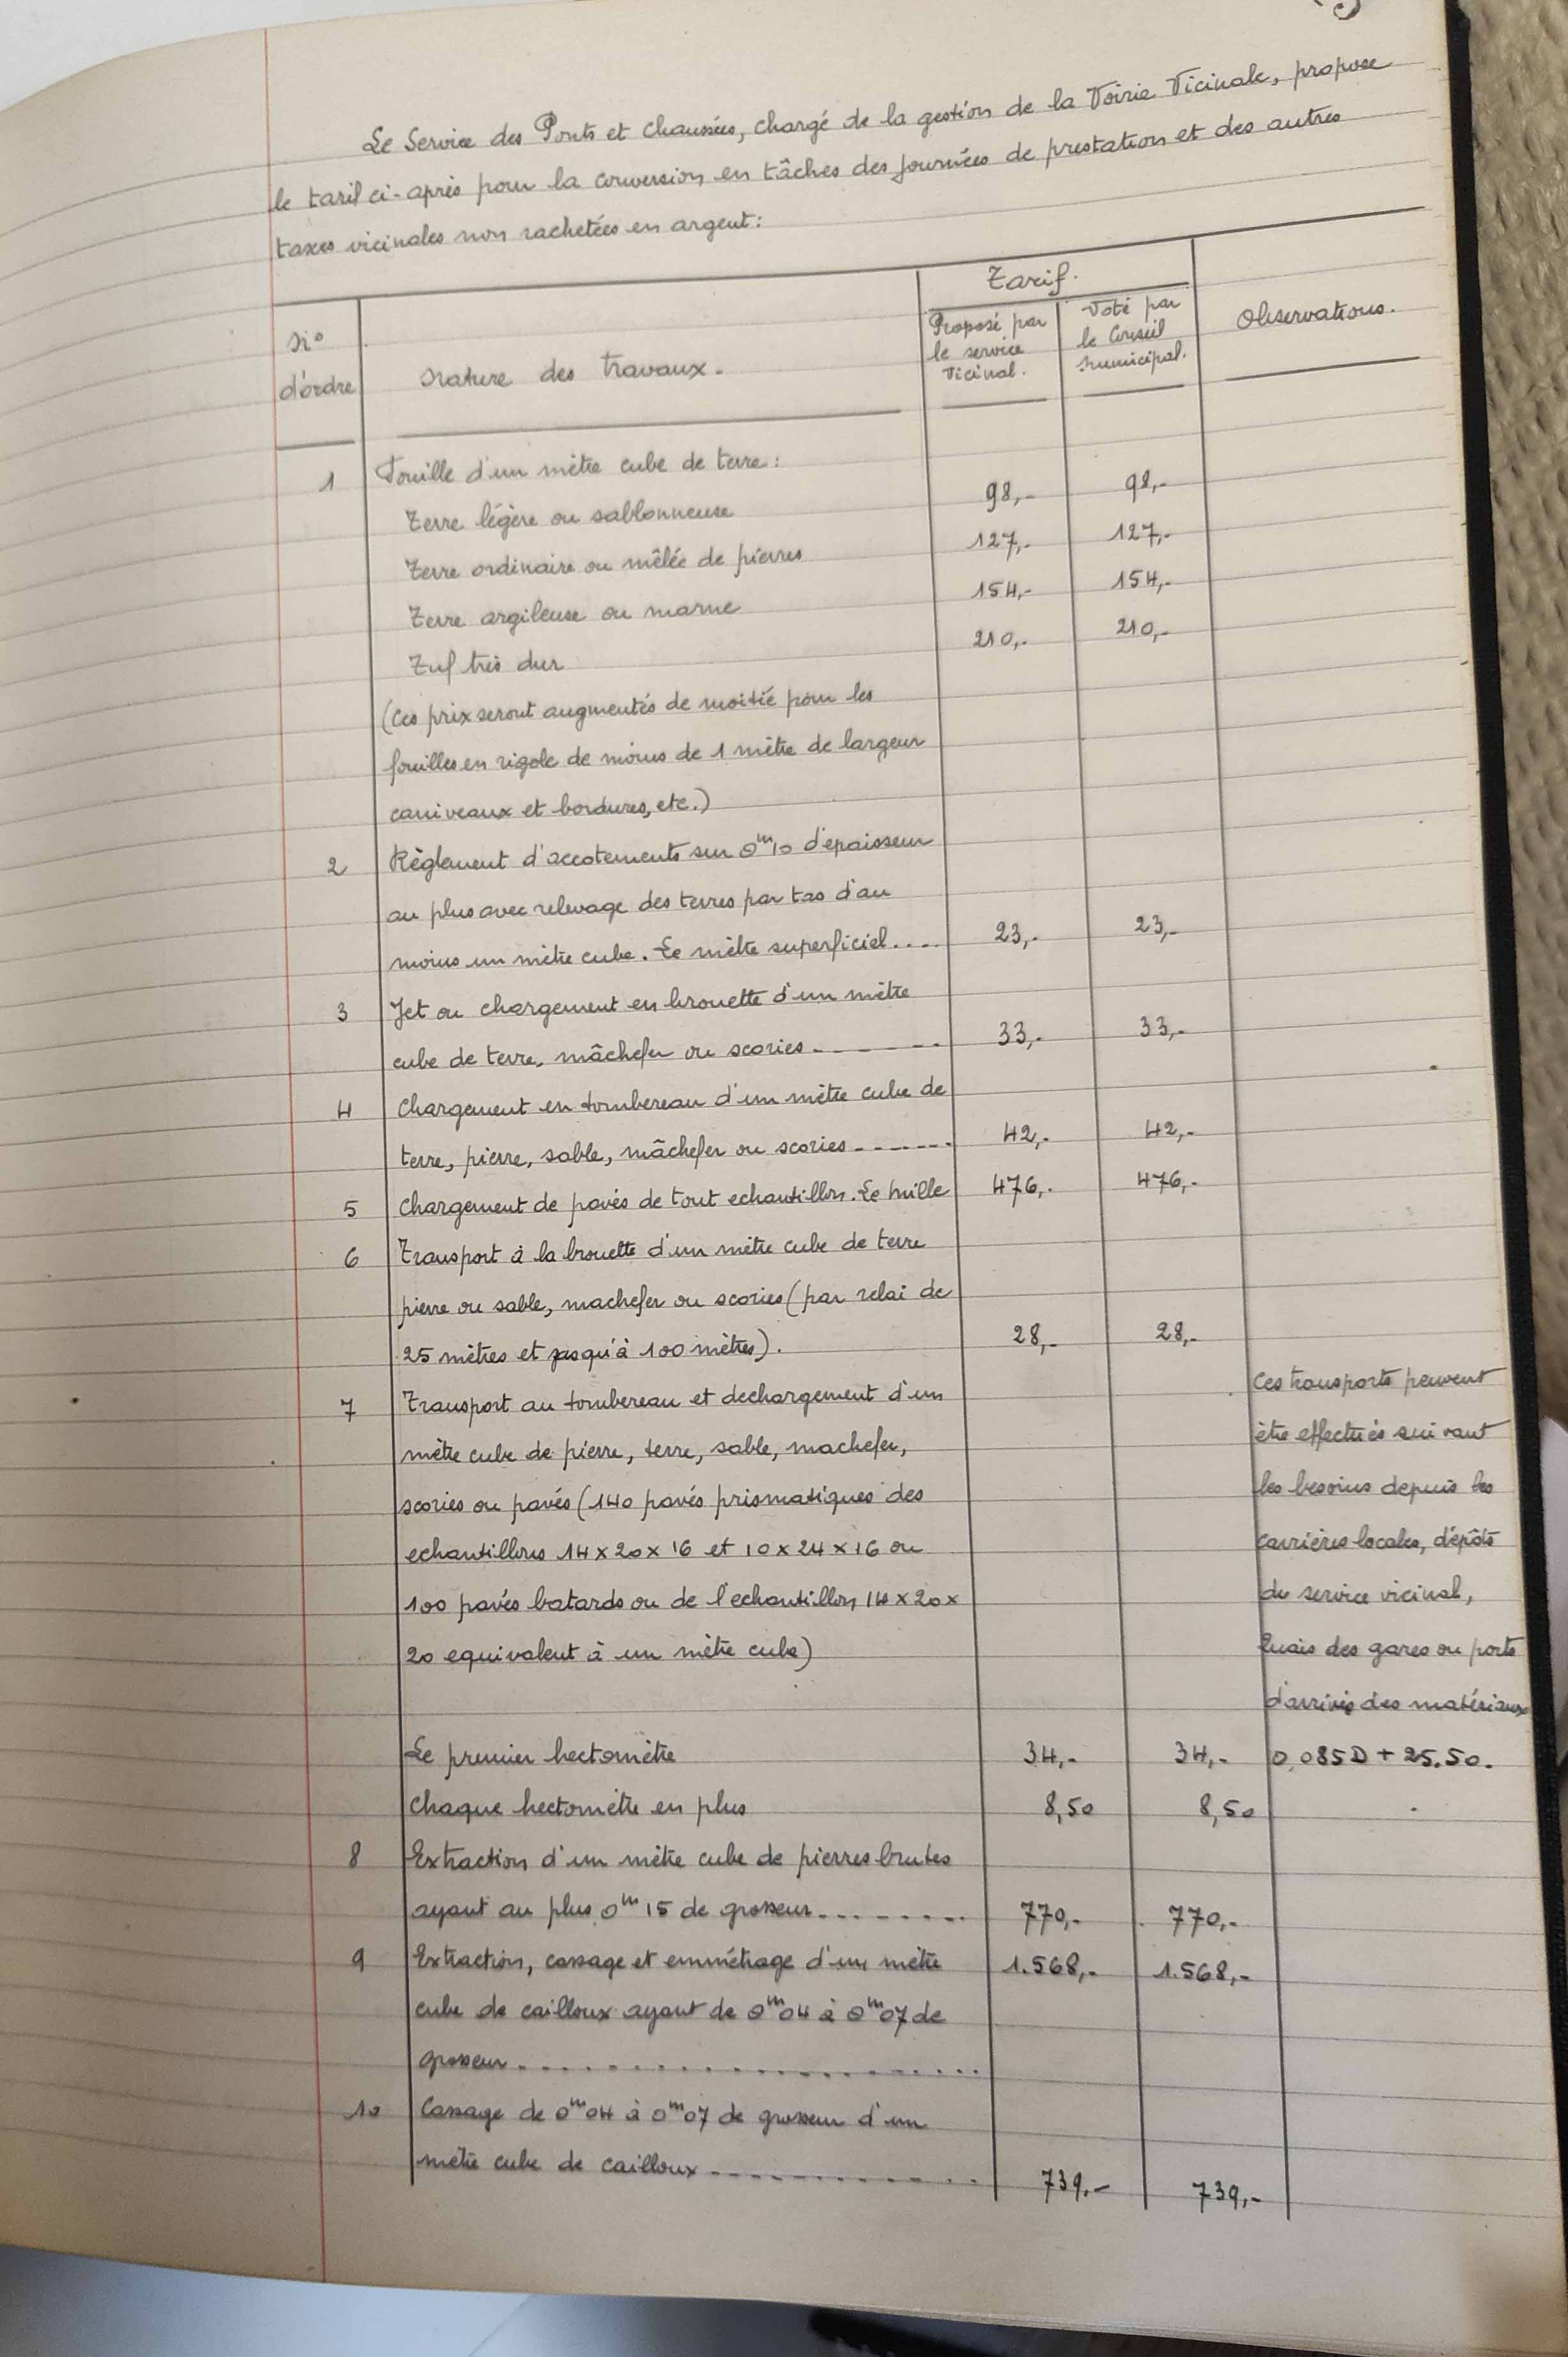 Le Service des Ponts et Chaussées, chargé de la gestion de la Voirie Vicinale, propose
le tarif ci-après pour la conversion en tâches des journées de prestation et des autres
taxes vicinales non rachetées en argent:
Tarif.
N° d'ordre
Nature des travaux.
Proposé par le service Vicinal.
Voté par le Conseil Municipal.
Observations.
1 Fouille d'un mètre cube de terre:
Terre légère ou sablonneuse 98,- 98,-
Terre ordinaire ou mêlée de pierres 127,- 127,-
Terre argileuse ou marne 154,- 154,-
Tuf très dur 210,- 210,-
(Ces prix seront augmentés de moitié pour les
fouilles en rigole de moins de 1 mètre de largeur
caniveaux et bordures, etc.)
2 Règlement d'accotements sur 0m10 d'épaisseur
au plus avec relevage des terres par tas d'au
moins un mètre cube. Le mètre superficiel.... 23,- 23,-
3 Jet ou chargement en brouette d'un mètre
cube de terre, mâchefer ou scories........ 33,- 33,-
4 Chargement en tombereau d'un mètre cube de
terre, pierre, sable, mâchefer ou scories....... 42,- 42,-
5 Chargement de pavés de tout echantillon. Le mille 476,- 476,-
6 Transport à la brouette d'un mètre cube de terre
pierre ou sable, machefer ou scories (par relai de
25 mètres et jusqu'à 100 mètres). 28,- 28,-
7 Transport au tombereau et dechargement d'un Ces transports peuvent
mètre cube de pierre, terre, sable, machefer, être effectués suivant
scories ou pavés (140 pavés prismatiques des les besoins depuis les
echantillons 14 x 20 x 16 et 10 x 24 x 16 ou carrières locales, dépôts
100 pavés batards ou de l'echantillon 14 x 20 x du service vicinal,
20 equivalent à un mètre cube) Quais des gares ou ports
d'arrivée des matériaux
Le premier hectomètre 34,- 34,- 0,085D + 25.50.
Chaque hectomètre en plus 8,50 8,50
8 Extraction d'un mètre cube de pierres brutes
ayant au plus 0m15 de grosseur......... 770,- 770,-
9 Extraction, cassage et emmétrage d'un mètre 1.568,- 1.568,-
cube de cailloux ayant de 0m04 à 0m07 de
grosseur......................
10 Cassage de 0m04 à 0m07 de grosseur d'un
mètre cube de cailloux............. 739,- 739,-